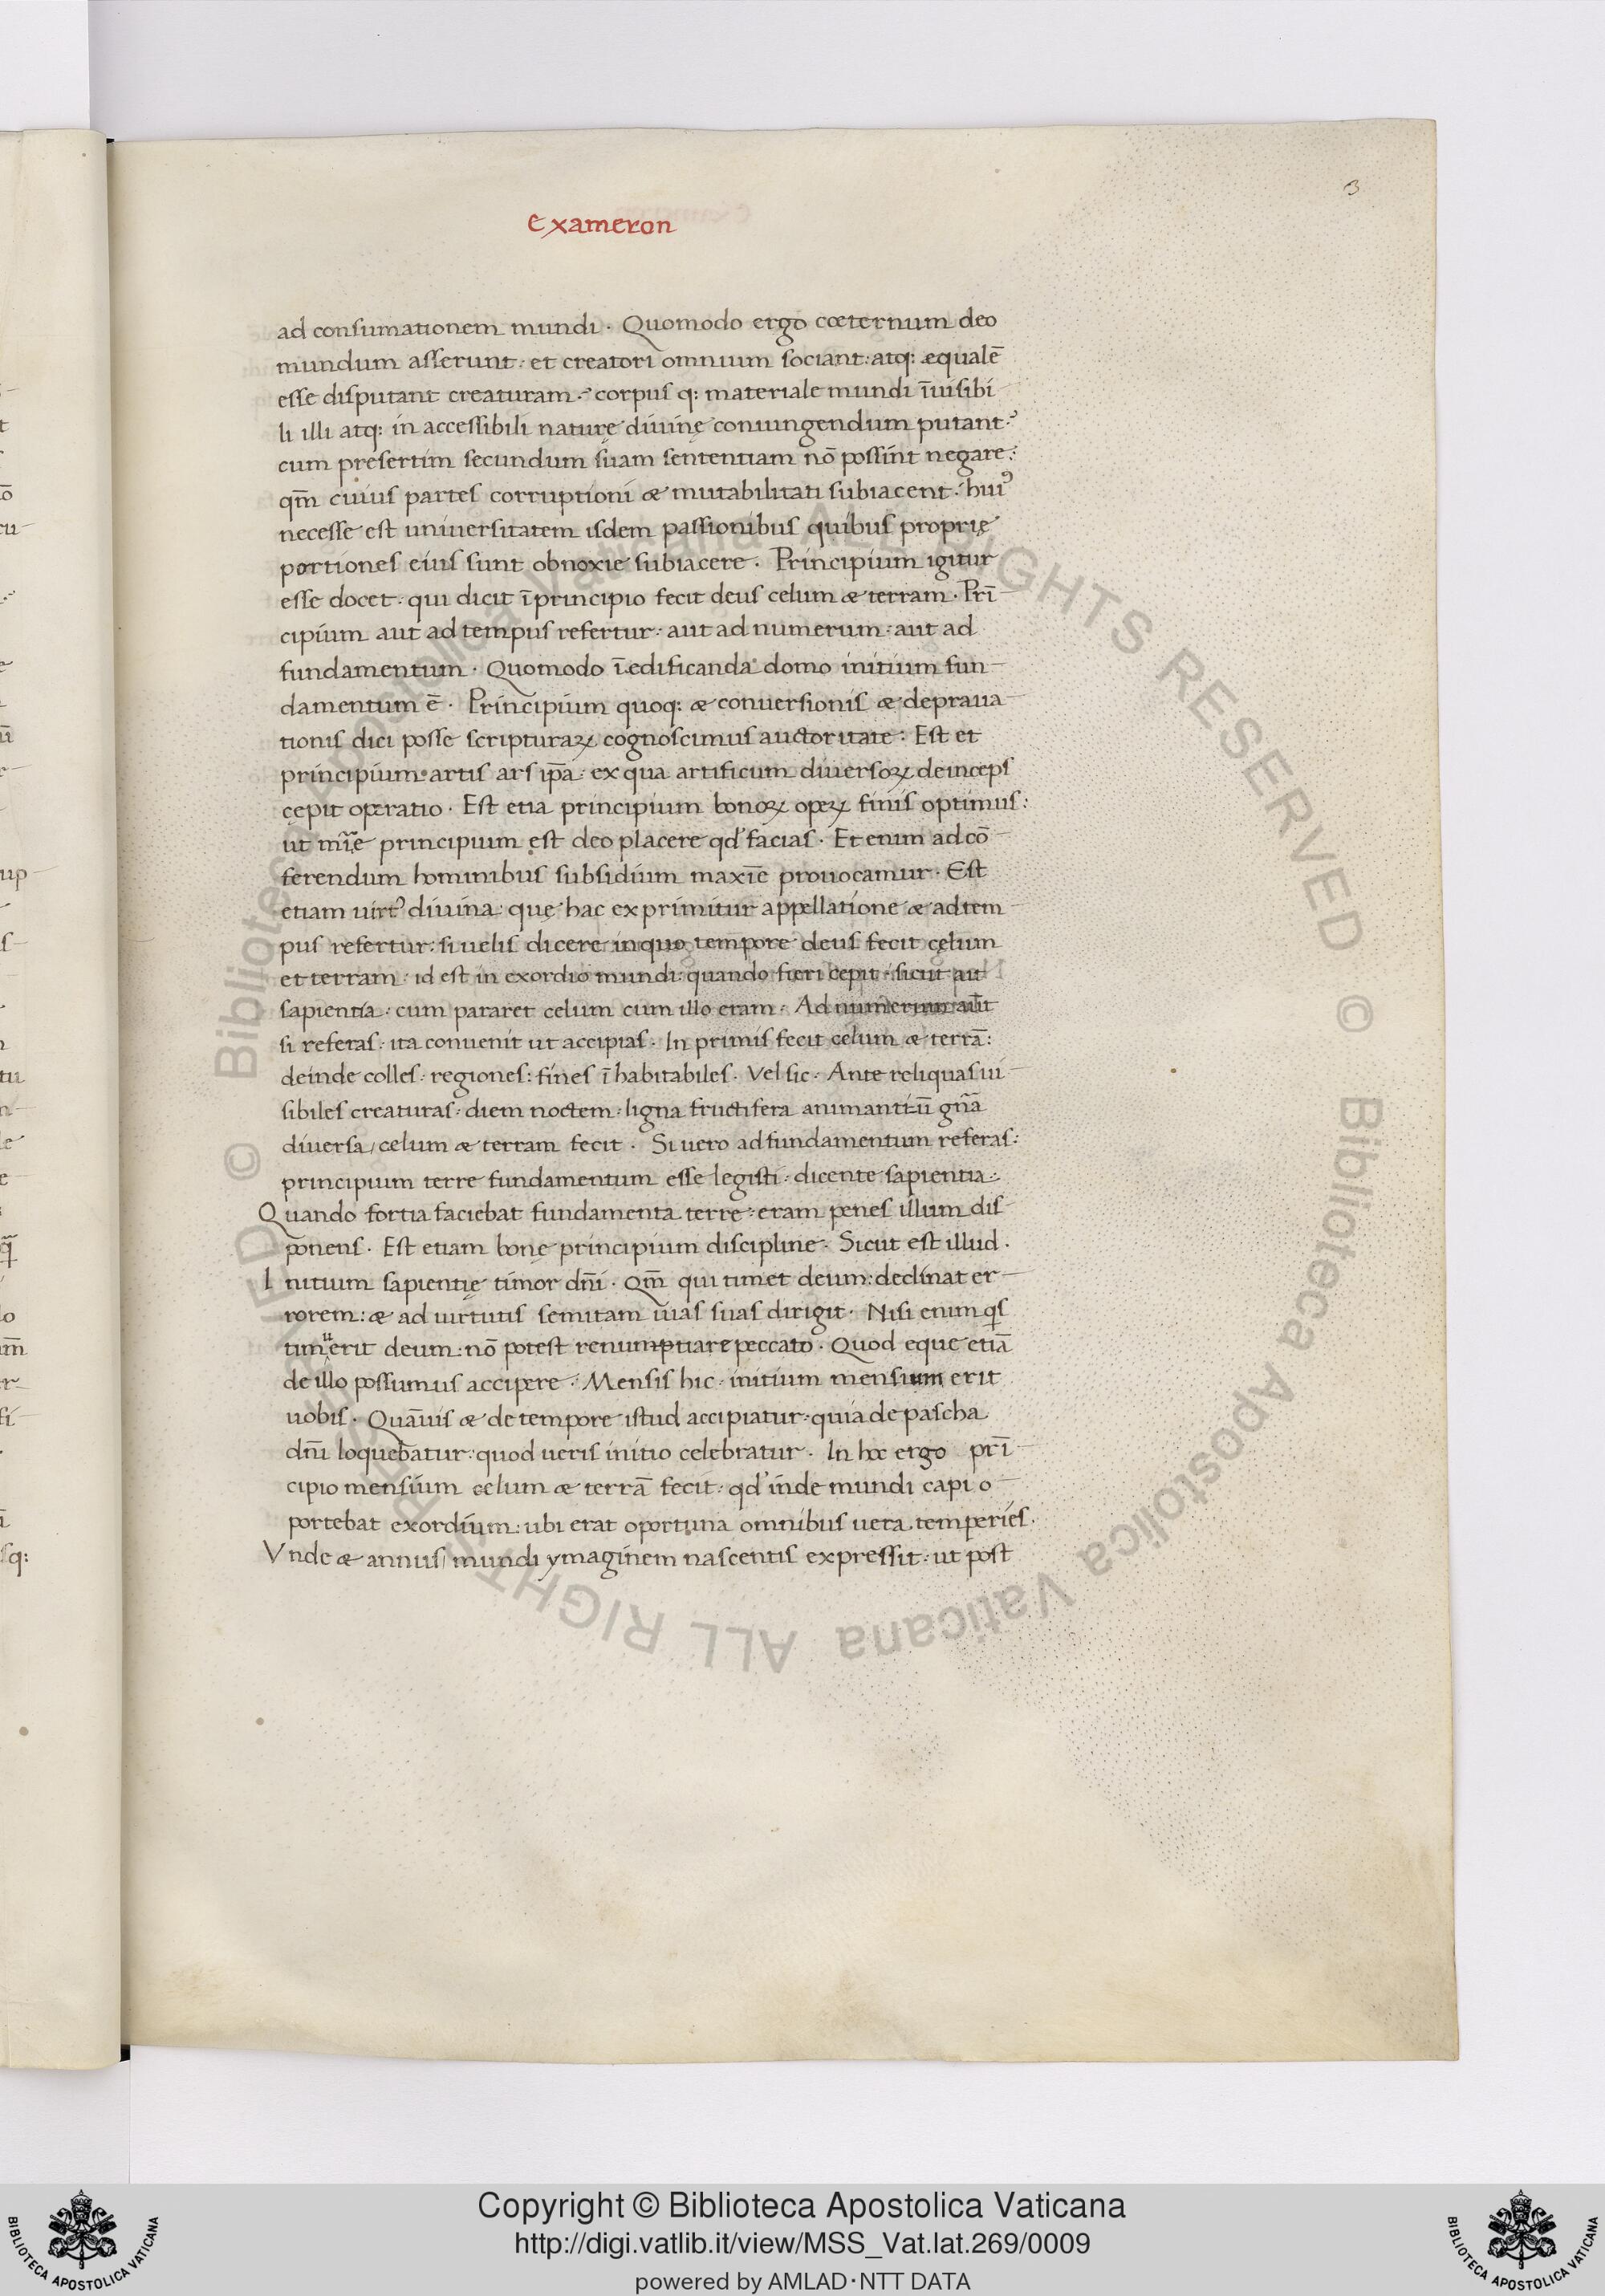 3
Exameron
ad consumationem mundi · Quomodo ergo coeternum deo
mundum asserunt : et creatori omnium sociant : atq: æqualē
esse disputant creaturam · corpus q: materiale mundi īuisibi
li illi atq: in accessibili naturę diuinę coniungendum putant :
cum presertim secundum suam sententiam nō possint negare :
qm̄ cuius partes corruptioni æ mutabilitati subiacent · huiꝰ
necesse est uniuersitatem isdem passionibus quibus proprię
portiones eius sunt obnoxie subiacere · Principium igitur
esse docet · qui dicit ī principio fecit deus celum æ terram · Prī
cipium aut ad tempus refertur : aut ad numerum : aut ad
fundamentum · Quomodo ī edificanda domo initium fun
damentum ē · Principium quoq: æ conuersionis æ depraua
tionis dici posse scripturaꝝ cognoscimus auctoritate : Est et
principium artis ars ip̄a : ex qua artificum diuersoꝝ deinceps
cępit operatio · Est etia principium bonoꝝ opeꝝ finis optimus :
ut mīe principium est deo placere qd' facias · Et enim ad cō
ferendum hominibus subsidium maxīe prouocamur · Est
etiam uirtꝰ diuina : quę hac exprimitur appellatione æ ad tem
pus refertur : si uelis dicere in quo tempore deus fecit cęlum
et terram : id est in exordio mundi : quando fieri cepit · sicut ait
sapientia : cum pararet celum cum illo eram · Ad numerum aūt
si referas : ita conuenit ut accipias · In primis fecit celum æ terrā :
deinde colles · regiones : fines ī habitabiles · Vel sic · Ante reliquas ui
sibiles creaturas : diem noctem : ligna fructifera animantiū gn̄a
diuersa / celum æ terram fecit · Si uero ad fundamentum referas :
principium terre fundamentum esse legisti : dicente sapientia :
Quando fortia faciebat fundamenta terre : eram penes illum dis
ponens · Est etiam bonę principium discipline · Sicut est illud ·
Initium sapientię timor dn̄i · Qm̄ qui timet deum : declinat er
rorem : æ ad uirtutis semitam uias suas dirigit · Nisi enim qs
timuerit deum : nō potest renumptiare peccato · Quod eque etiā
de illo possumus accipere · Mensis hic · initium mensium erit
uobis · Quāuis æ de tempore istud accipiatur : quia de pascha
dn̄i loquebatur : quod ueris initio celebratur · In hoc ergo prī
cipio mensium celum æ terrā fecit : qd' inde mundi capi o
portebat exordium : ubi erat oportuna omnibus uera temperies ·
Vnde æ annus / mundi ymaginem nascentis expressit : ut post
Copyright © Biblioteca Apostolica Vaticana
http://digi.vatlib.it/view/MSS_Vat.lat.269/0009
powered by AMLAD·NTT DATA
BIBLIOTECA APOSTOLICA VATICANA
BIBLIOTECA APOSTOLICA VATICANA